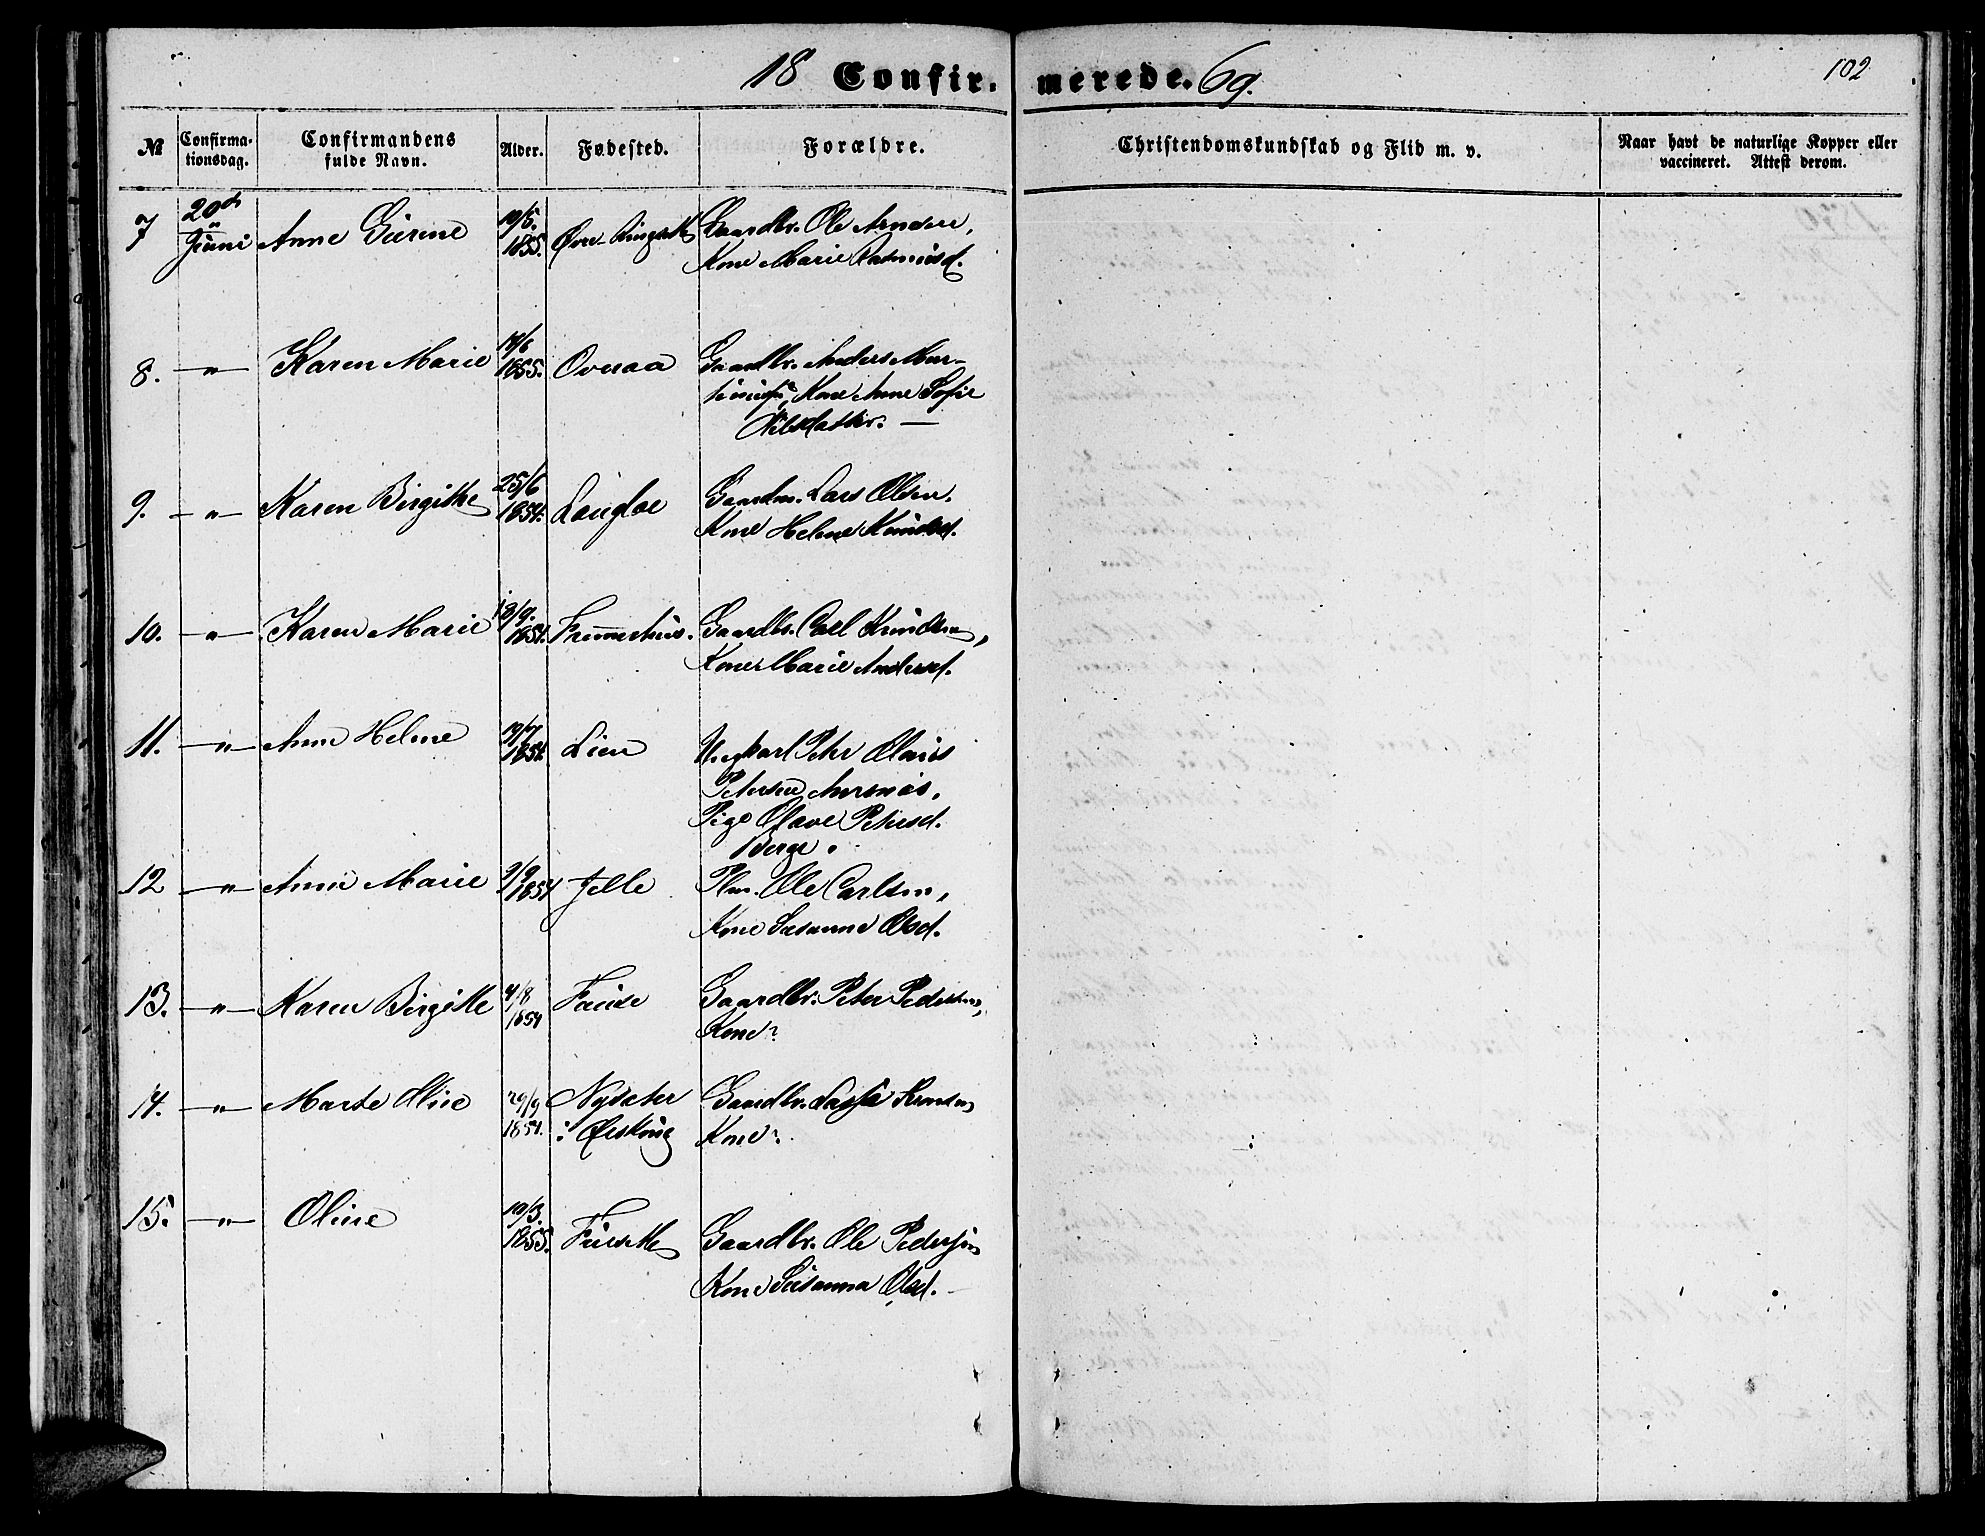 18 Confir- merede. 69. 102
№ Confirma- tionsdag. Confirmandens fulde Navn. Alder. Fødested. Forældre. Christendomskundskab og Flid m. v. Naar havt de naturlige Kopper eller vaccineret. Attest derom.
7 20de Juni Anne Gurine 19/5. 1855. Gaardbr. Ole Arnsen,
Kone Marie Rasmusd.
8. -"- Karen Marie 1855. Overaa Gaardbr. Anders Mar-
Kone Anne Sofie
Nilsdatter. —
9. -"- Karen Birgitte 25/6 1854. Langloe Gaardm. Lars Olsen.
Kone Helene Knudsd.
10. -"- Karen Marie 18/9. 1854. Gaardbr. Carl Knudsen,
Kone Marie Andersd.
11. -"- Anne Helene 19/7 1854. Lien Ungkarl Peter Olaus
Petersen Aursnæs,
Pige Olave Petersd.
Berge.
12 -"- Anne Marie 9/9 1854 Jelle Plm. Ole Carlsen,
Kone Susanne Olsd.
13. -"- Karen Birgitte 4/8 1854 Fause Gaardbr. Peter Pedersen,
Kone?
14. -"- Marte Oline 29/9 1854. Nysæter Gaardbr. Lasse Knudsen
i Ørskoug Kone?
15. -"- Oline 19/3. 1855. Fursæth Gaardbr. Ole Pedersen
Kone Susanna Olsd. —